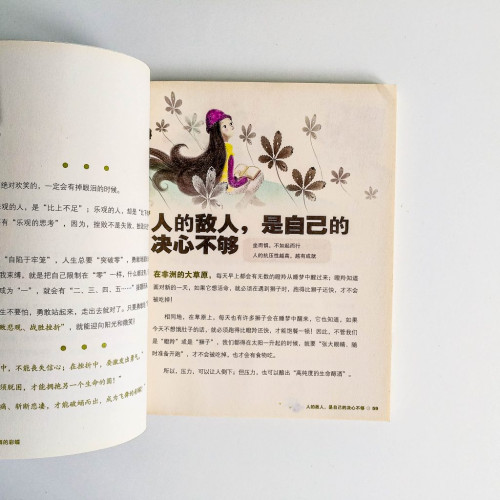 绝对欢笑的，一定会有掉眼泪的时候。
乐观的人，是“比上不足”；乐观的人，却是“比下
有“乐观的思考”，因为，挫败不是失败，
“自陷于牢笼”，人生总要“突破零”，勇敢地
我束缚，就是把自己限制在“零”一样，什么都
成为“一”，就会有“二、三、四、五……”
生不要怕，勇敢站起来，走出去就对了。只要
敢悲观、战胜挫折”，就能迎向阳光和微笑）
中，不能丧失信心；在挫折中，要激发出勇气。
须脱困，才能拥抱另一个生命的圆？”
痛、斩断悲凄，才能破蛹而出，成为飞舞的彩蝶
的彩蝶
人的敌人，是自己的
决心不够
坐而烦，不如起而行
人的抗压性越高，越有成就
在非洲的大草原，每天早上都会有无数的瞪羚从睡梦中醒过来；瞪羚知道
面对新的一天，如果它想活命，就必须在遇到狮子时，跑得比狮子还快，才不会
被吃掉！
相同地，在草原上，每天也有许多狮子会在睡梦中醒来，它也知道，如果
今天不想饿肚子的话，就必须跑得比瞪羚还快，才能饱餐一顿！因此，不管我们
是“瞪羚”或是“狮子”，我们都得在太阳一升起的时候，就要“张大眼睛、随
时准备开跑”，才不会被吃掉，也才会有食物吃。
所以，压力，可以让人倒下；但压力，也可以酿出“高纯度的生命醇酒”。
人的敌人，是自己的决心不够 59